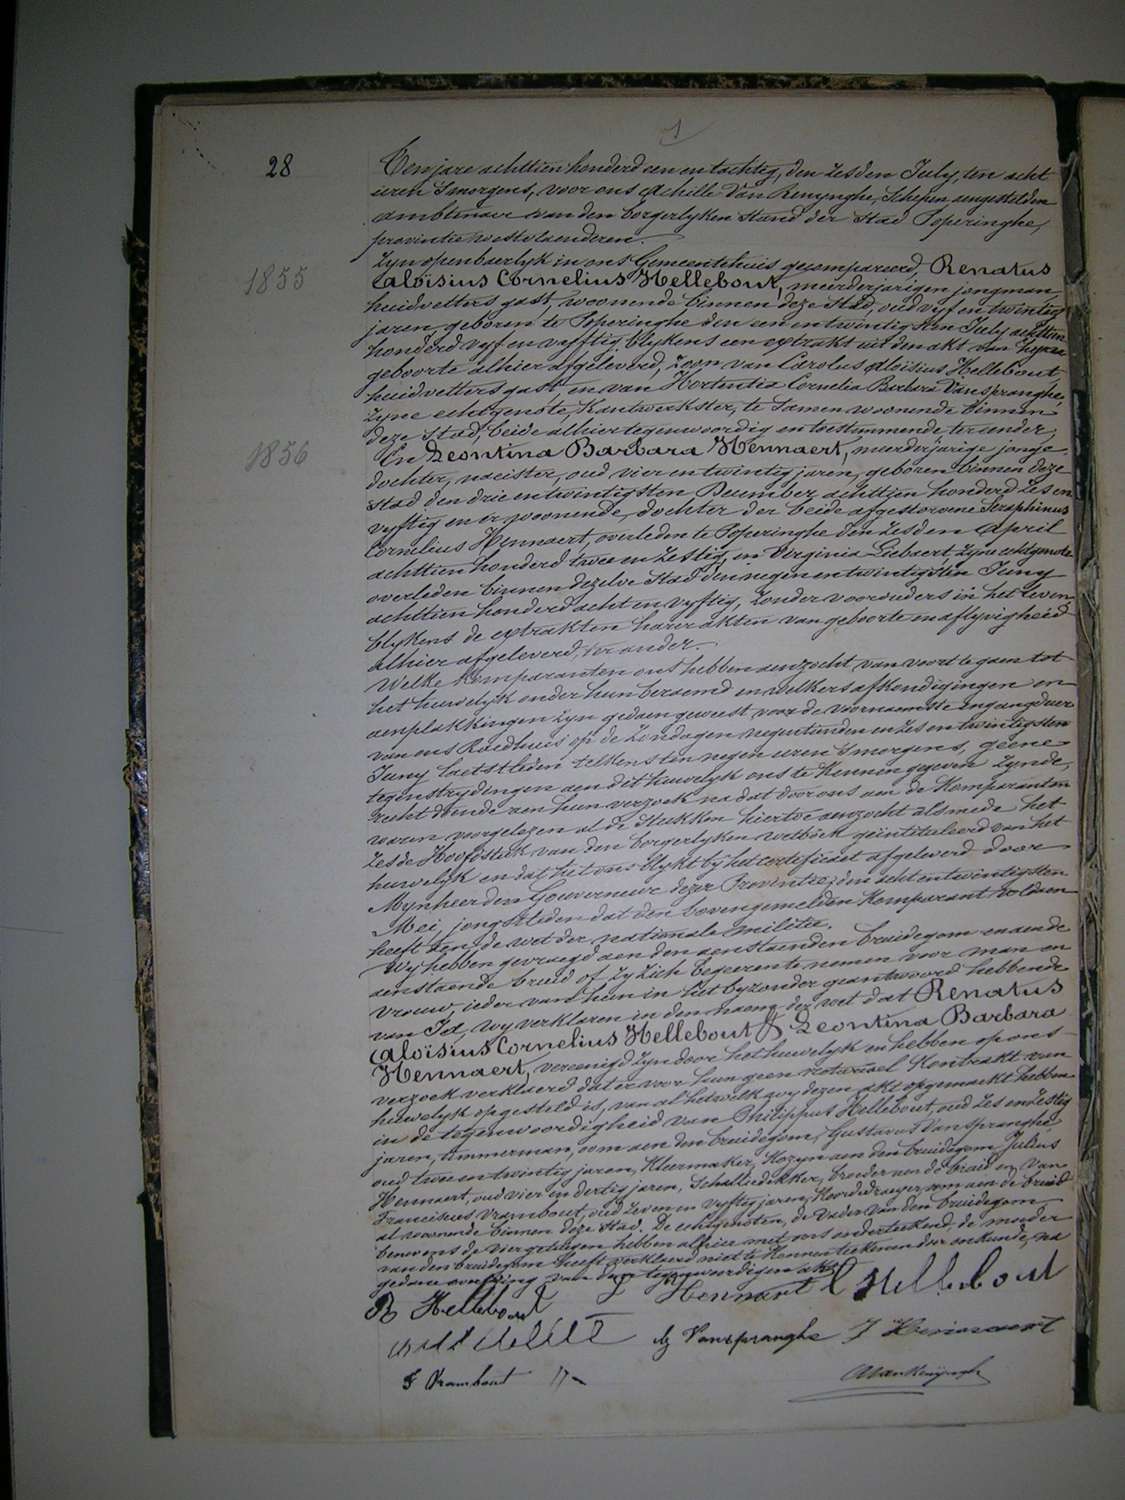 1
28
Ten jare achttien honderd een en tachtig, den zesden July, ten acht
uren Smorgens, voor ons Achille Van Renynghe, Schepen aengestelden
ambtenaer van den borgerlyken stand der Stad Poperinghe,
provintie westvlaenderen.
Zyn openbaerlyk in ons Gemeentehuis gecompareerd, Renatus
1855
Caloïsius Cornelius Hellebout, meerderjarigen jongman
huidvetters gast, woonende binnen deze Stad, oud vyf en twintig
jaren, geboren te Poperinghe den een en twintigsten July achttien
honderd vyf en vyftig blykens een extrakt uit den akt van zyne
geboorte alhier afgeleverd, Zoon van Carolus Aloïsius Hellebout
huidvetters gast, en van Hortentia Cornelia Barbara Vanspranghe,
Zyne echtgenote, Kantwerkster, te Samen woonende binnen
deze Stad, beide alhier tegenwoordig en toestemmende ter ander
1856
En Leontina Barbara Hennaert, meerderjarige jonge
dochter, naeister, oud vier en twintig jaren, geboren binnen deze
Stad den drie en twintigsten December, achttien honderd zes en
vyftig en er woonende, dochter der beide afgestorvene Seraphinus
Cornelius Hennaert, overleden te Poperinghe den zesden April
achttien honderd twee en zestig, en Virginia Liebaert Zyne echtgenote
overleden binnen dezelve Stad den negen en twintigsten Juny
achttien honderd acht en vyftig, Zonder voorouders in het leven
blykens de extrakten harer akten van geboorte en aflyvigheid
alhier afgeleverd, ter ander.
Welke Komparanten ons hebben aenzocht van voort te gaen tot
het huwelyk onder hun beraemd en welkers afkondigingen en
aenplakkingen zyn gedaen geweest voor de voornaemste ingangdeur
van ons Raedhuis op de zondagen negentienden en zes en twintigsten
Juny laetstleden telkens ten negen uren Smorgens, geene
tegenstrydingen aen dit huwelyk ons te Kennen gegeven Zynde,
recht doende aen hun verzoek na dat door ons aen de Komparanten
waren voorgelezen al de stukken hiertoe aenzocht alsmede het
zesde Hoofdstuk van den borgerlyken wetboek geïntituleerd van het
huwelyk en dat het ons blykt by het certificaet afgeleverd door
Mynheer den Gouverneur dezer Provintie, den acht en twintigsten
Mei, jongstleden dat den bovengemelden Komparant voldaen
heeft aen de wet der nationale militie.
Wy hebben gevraegd aen den aenstaenden bruidegom en aen de
aenstaende bruid of zy zich begeeren te nemen voor man en
vrouw, ieder van hun in het byzonder geantwoord hebbende
van Ja, wy verklaren in den naem der wet dat Renatus
Caloïsius Cornelius Hellebout & Leontina Barbara
Hennaert, vereenigd Zyn door het huwelyk en hebben op ons
verzoek verklaerd dat er voor hun geen notarieel Kontrakt van
huwelyk opgesteld is, van al hetwelk wy dezen akt opgemaekt hebben
in de tegenwoordigheid van Philippus Hellebout, oud zes en zestig
jaren, timmerman, oom aen den bruidegom, Gustavus Vanspranghe
oud twee en twintig jaren, Kleermaker, Kozyn aen den bruidegom, Julius
Hennaert, oud vier en dertig jaren, Schaliedekker, broeder aen de bruid en van
Franciscus Vrambout, oud zeven en vyftig jaren, Koorddraeyer, oom aen de bruid
al woonende binnen deze Stad. De echtgenoten, de Vader van den bruidegom
benevens de vier getuigen hebben alhier met ons onderteekend, de moeder
van den bruidegom heeft verklaerd niet te Kennen teekenen door onkunde, na
gedane voorlezing van den tegenwoordigen akt.
R Hellebout L Hennaert C Hellebout
G Vanspranghe J Hennaert
F Vrambout
A Van Renynghe